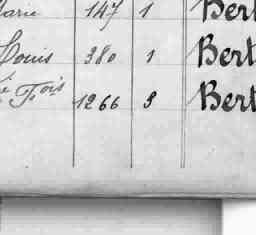 Marie 147 1 Bert
Louis 380 1 Bert
Fois 1266 3 Bert